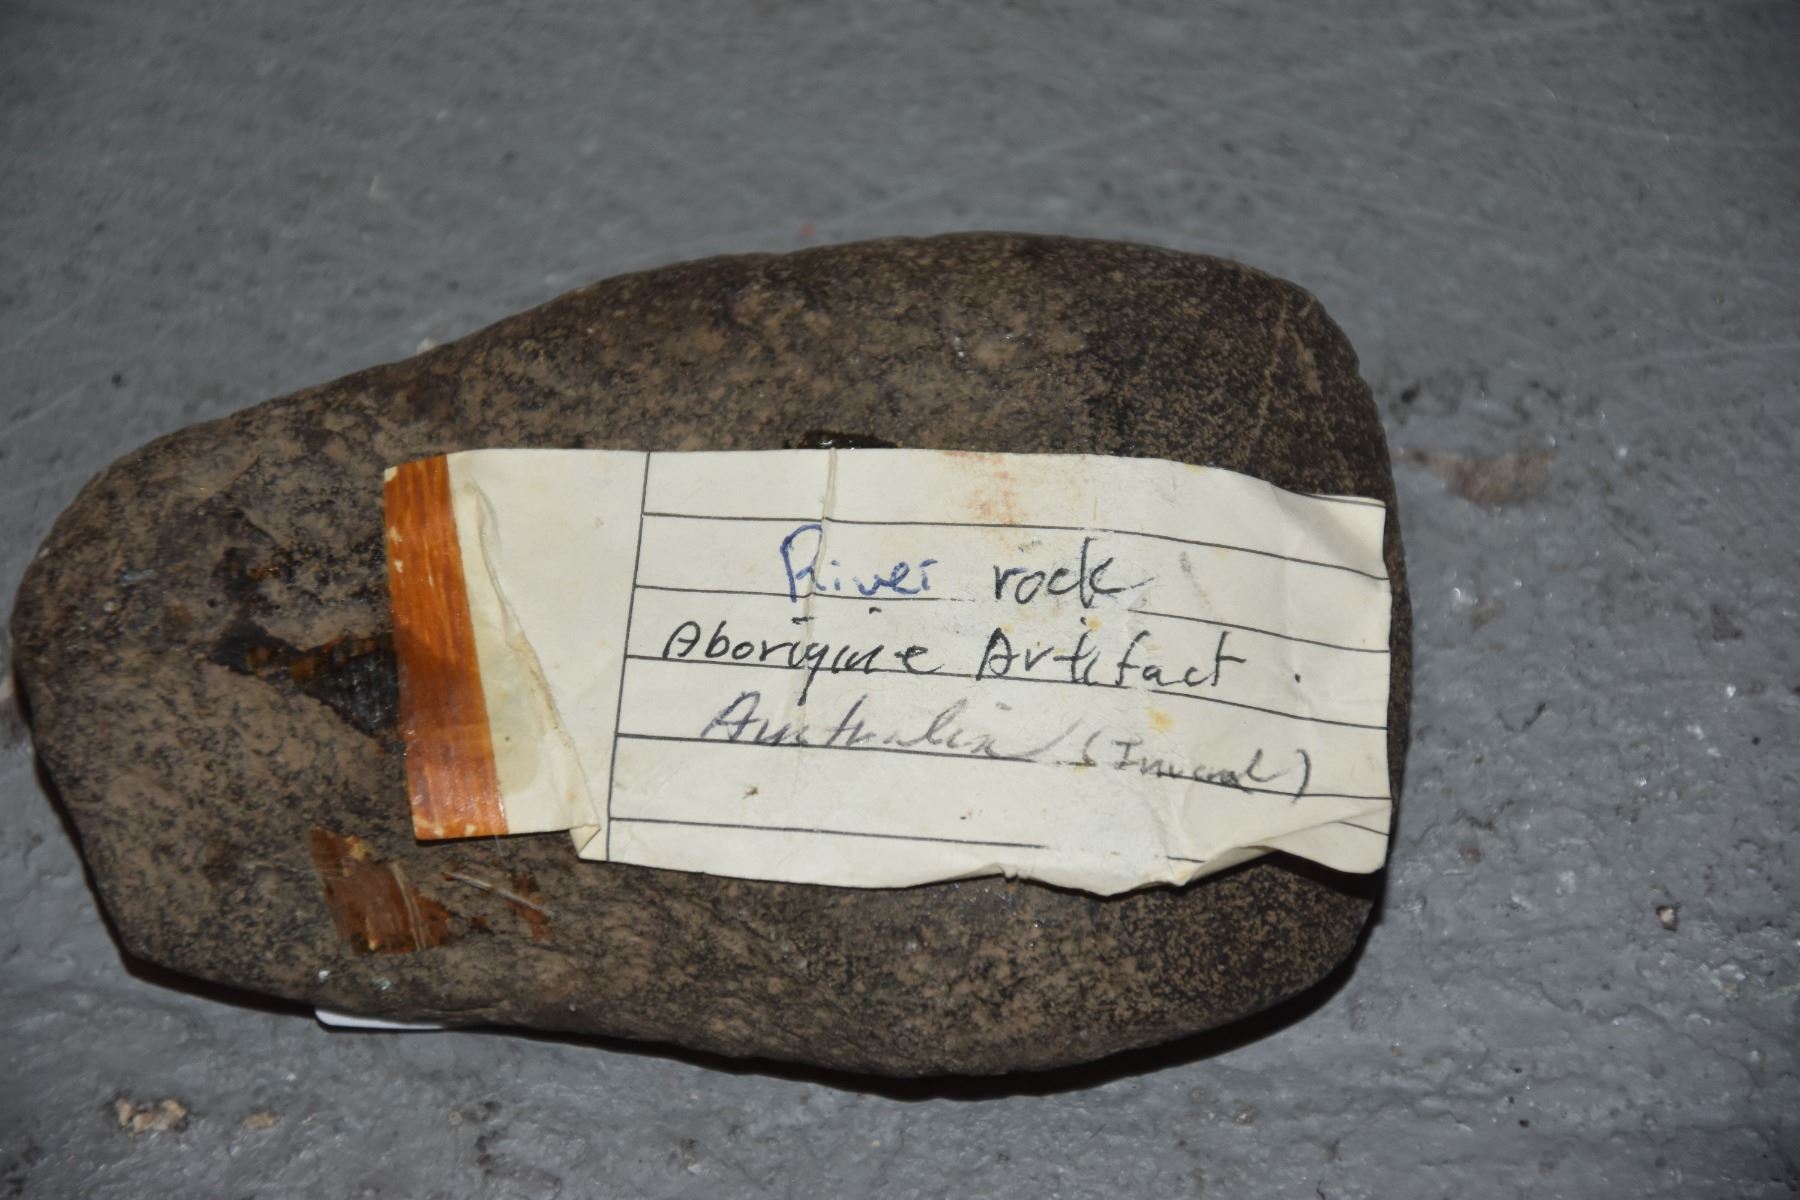 River rock
Aborigine Artifact.
Australia